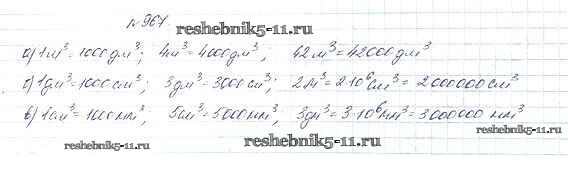 №967.
reshebnik5-11.ru
а) 1м³=1000дм³; 4м³=4000дм³; 42м³=42000дм³
б) 1дм³=1000см³; 3дм³=3000см³; 2м³=2·10⁶см³=2000000см³
в) 1см³=1000мм³; 5см³=5000мм³; 3дм³=3·10⁶мм³=3000000 мм³
reshebnik5-11.ru
reshebnik5-11.ru
reshebnik5-11.ru